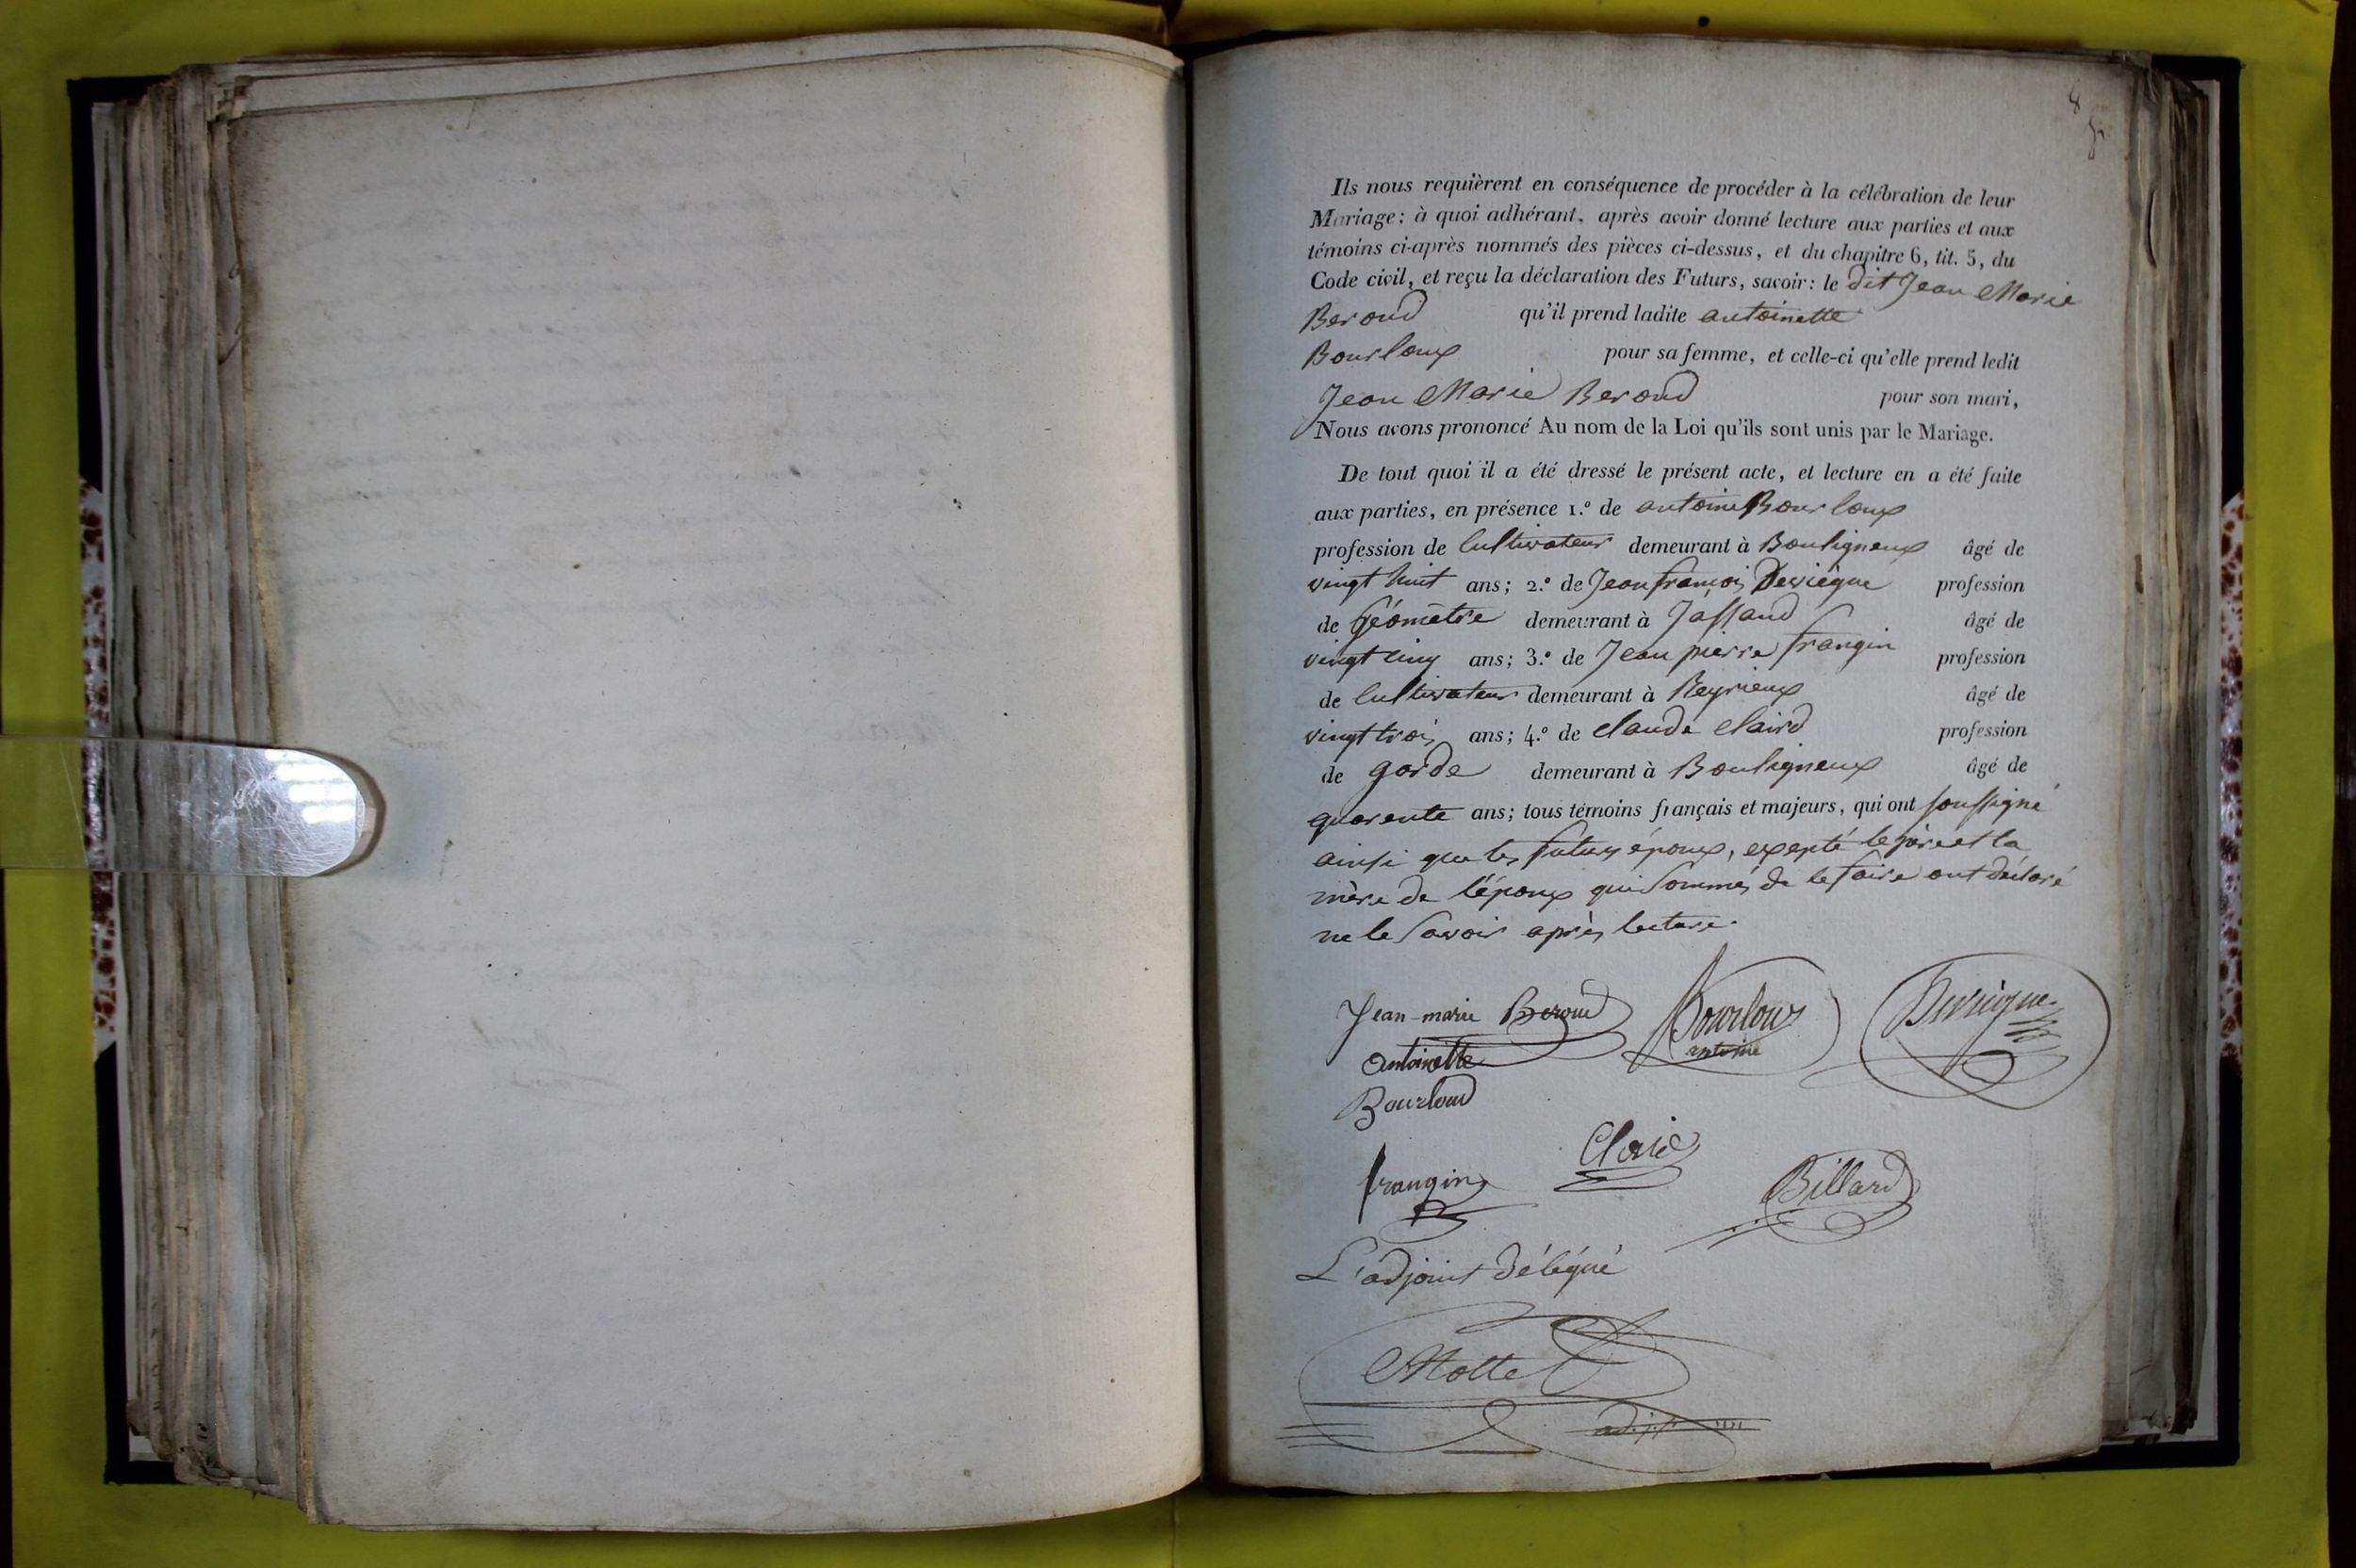 8
Ils nous requièrent en conséquence de procéder à la célébration de leur
Mariage: à quoi adhérant, après avoir donné lecture aux parties et aux
témoins ci-après nommés des pièces ci-dessus, et du chapitre 6, tit. 5, du
Code civil, et reçu la déclaration des Futurs, savoir: le dit Jean Marie
Beroud qu'il prend ladite antoinette
Bourloux pour sa femme, et celle-ci qu'elle prend ledit
Jean Marie Beroud pour son mari,
Nous avons prononcé Au nom de la Loi qu'ils sont unis par le Mariage.
De tout quoi il a été dressé le présent acte, et lecture en a été faite
aux parties, en présence 1.º de antoine Bourloux
profession de Cultivateur demeurant à Bouligneux âgé de
vingt huit ans; 2.º de Jean françois Deviègue profession
de Géomètre demeurant à Jassand âgé de
vingt cinq ans; 3.º de Jean pierre frangin profession
de Cultivateur demeurant à Reyrieux âgé de
vingt trois ans; 4.º de Claude Claird profession
de garde demeurant à Bouligneux âgé de
quarente ans; tous témoins français et majeurs, qui ont soussigné
ainsi que les futurs époux, excepté le père et la
mère de l'époux qui sommés de le faire ont déclaré
ne le savoir après lecture.
Jean-marie Beroud Bourloux Deviegue
antoinette antoine
Bourloud
frangin Clair Billard
L'adjoint délégué
Motte